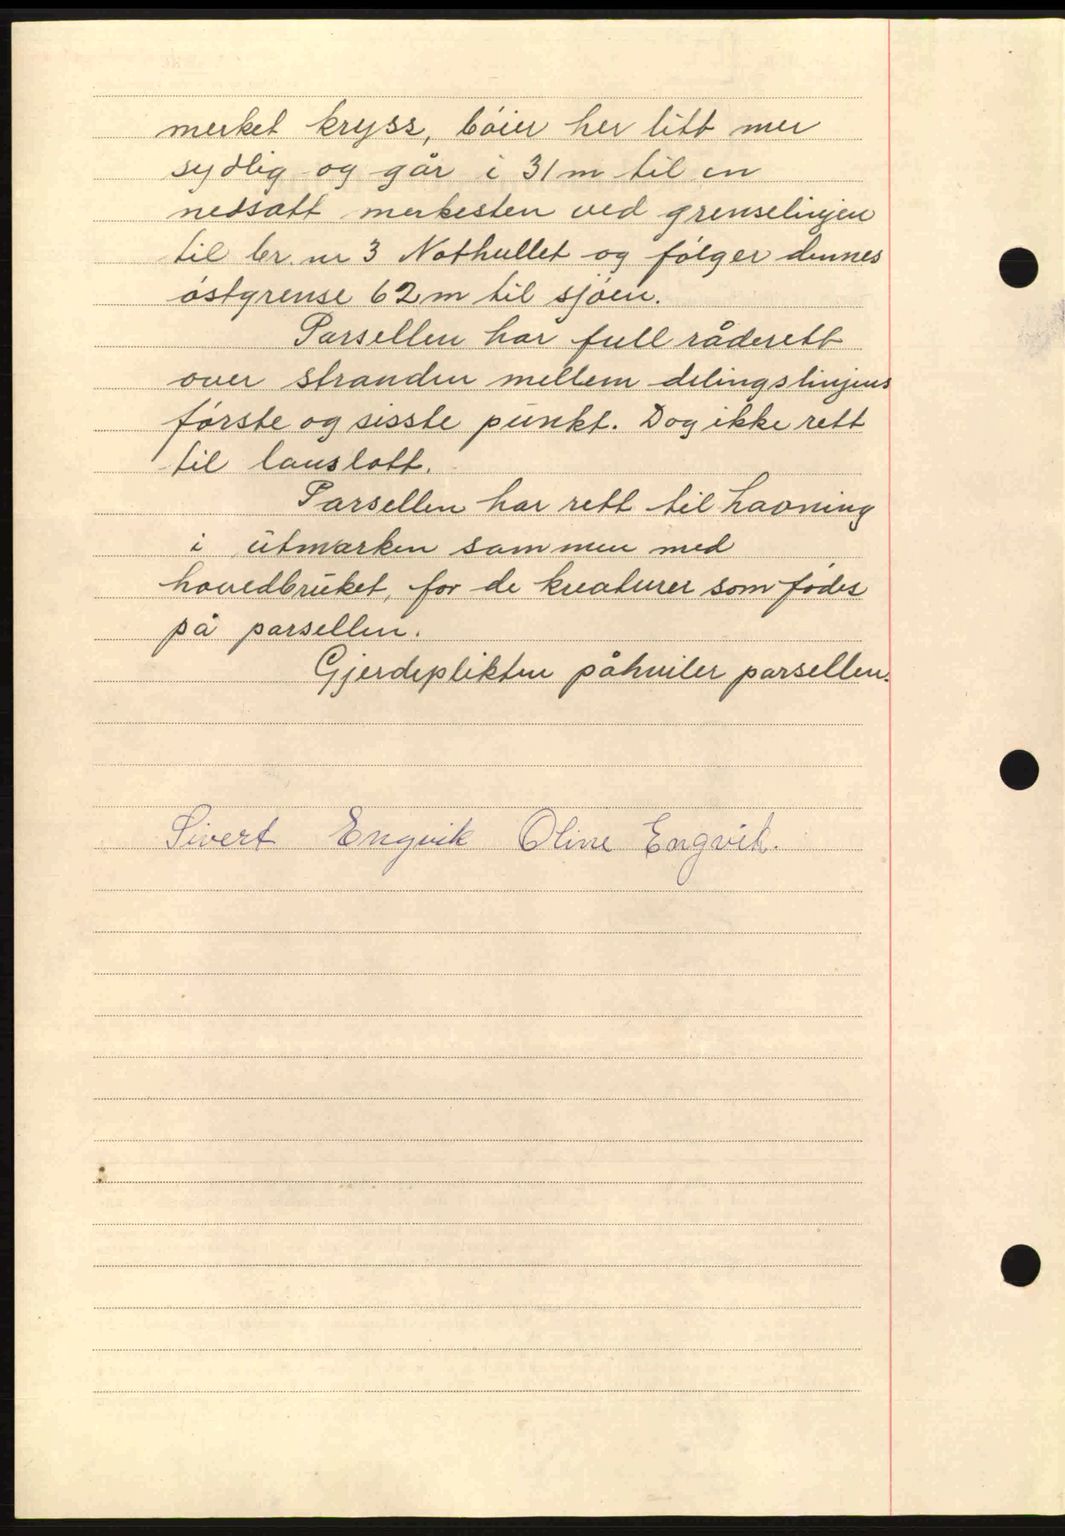 merket kryss, bøier her litt mer
sydlig og går i 31 m til en
nedsatt merkesten ved grenselinjen
til br. nr 3 Nothullet og følger dennes
østgrense 62 m til sjøen.
Parsellen har full råderett
over stranden mellem delingslinjens
første og sisste punkt. Dog ikke rett
til lauslott.
Parsellen har rett til havning
i utmarken sammen med
hovedbruket, for de kreaturer som fødes
på parsellen.
Gjerdeplikten påhviler parsellen.
Sivert Engvik Oline Engvik.